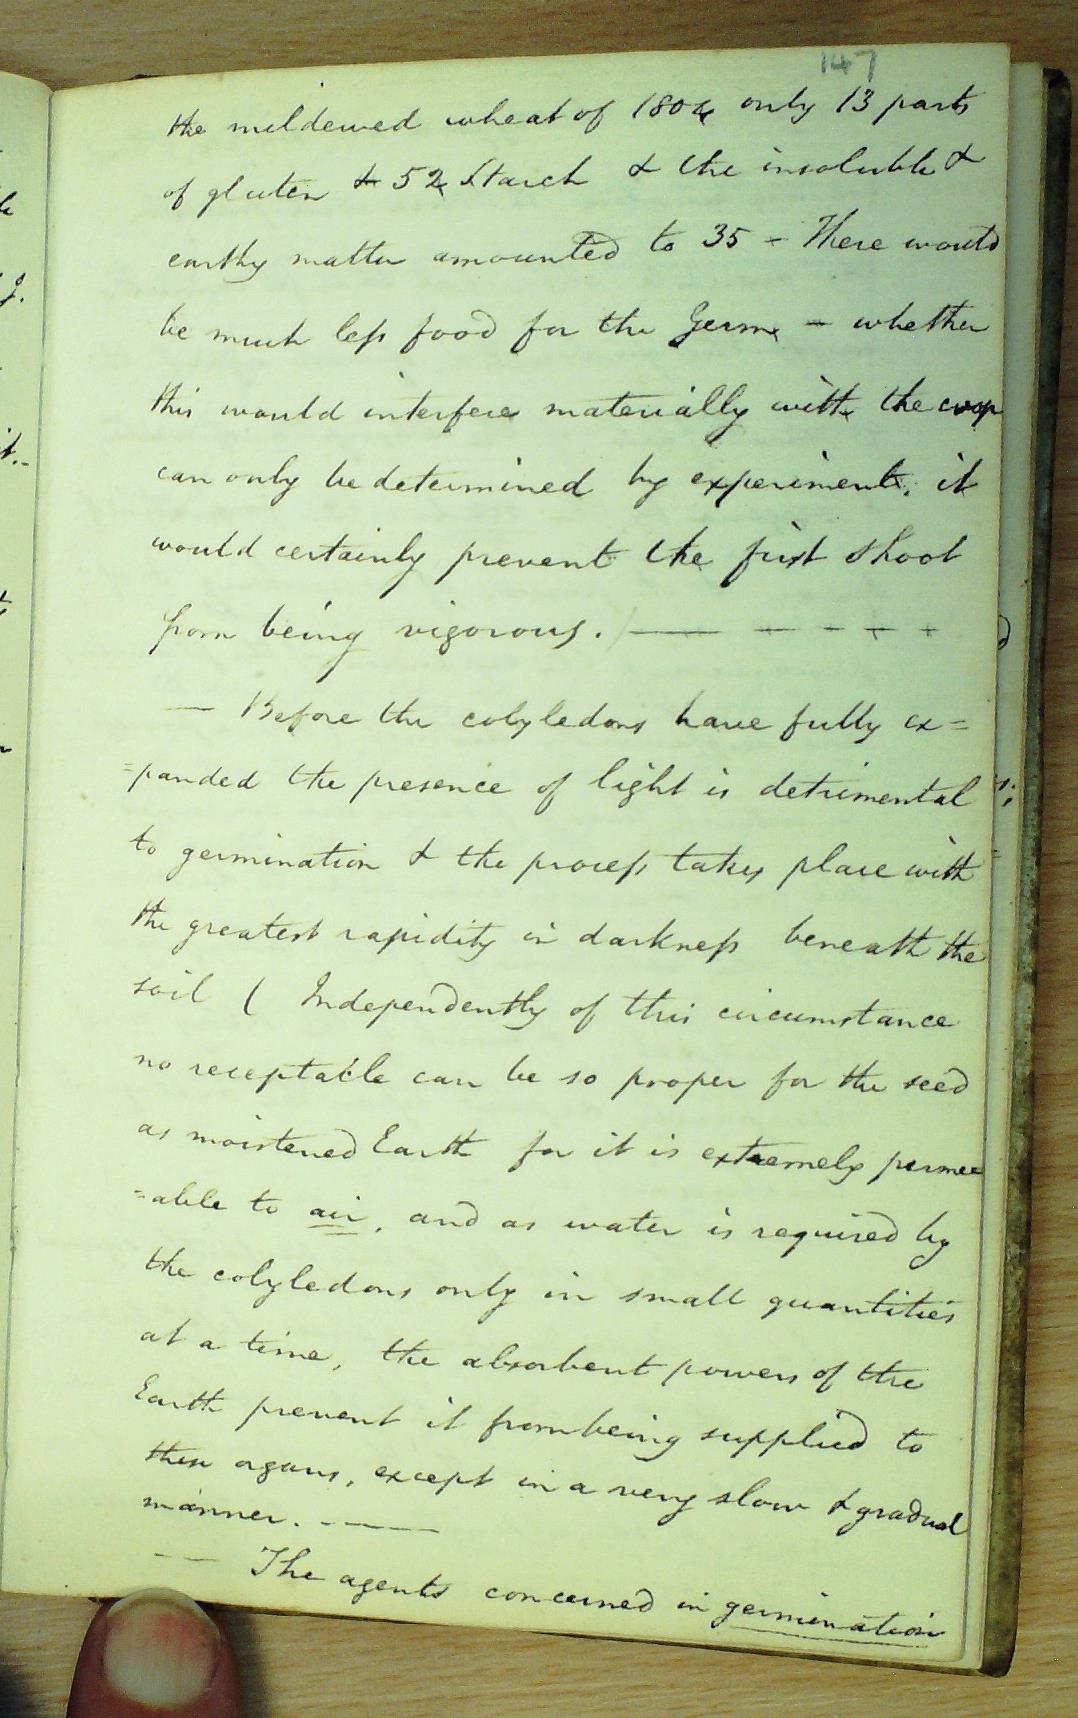 147
the mildewed wheat of 1804 only 13 parts
of gluten & 52 Starch & the insoluble &
earthy matter amounted to 35 - There would
be much less food for the Germ, - whether
this would interfere materially with the crop
can only be determined by experiment, it
would certainly prevent the first shoot
from being vigorous. —— — - - + +
— Before the cotyledons have fully ex=
=panded the presence of light is detrimental
to germination & the process takes place with
the greatest rapidity in darkness beneath the
soil ( Independently of this circumstance
no receptacle can be so proper for the seed
as moistened Earth for it is extremely perme
=able to air, and as water is required by
the cotyledons only in small quantities
at a time, the absorbent powers of the
Earth prevent it from being supplied to
these organs, except in a very slow & gradual
manner. - ——
— The agents concerned in germination